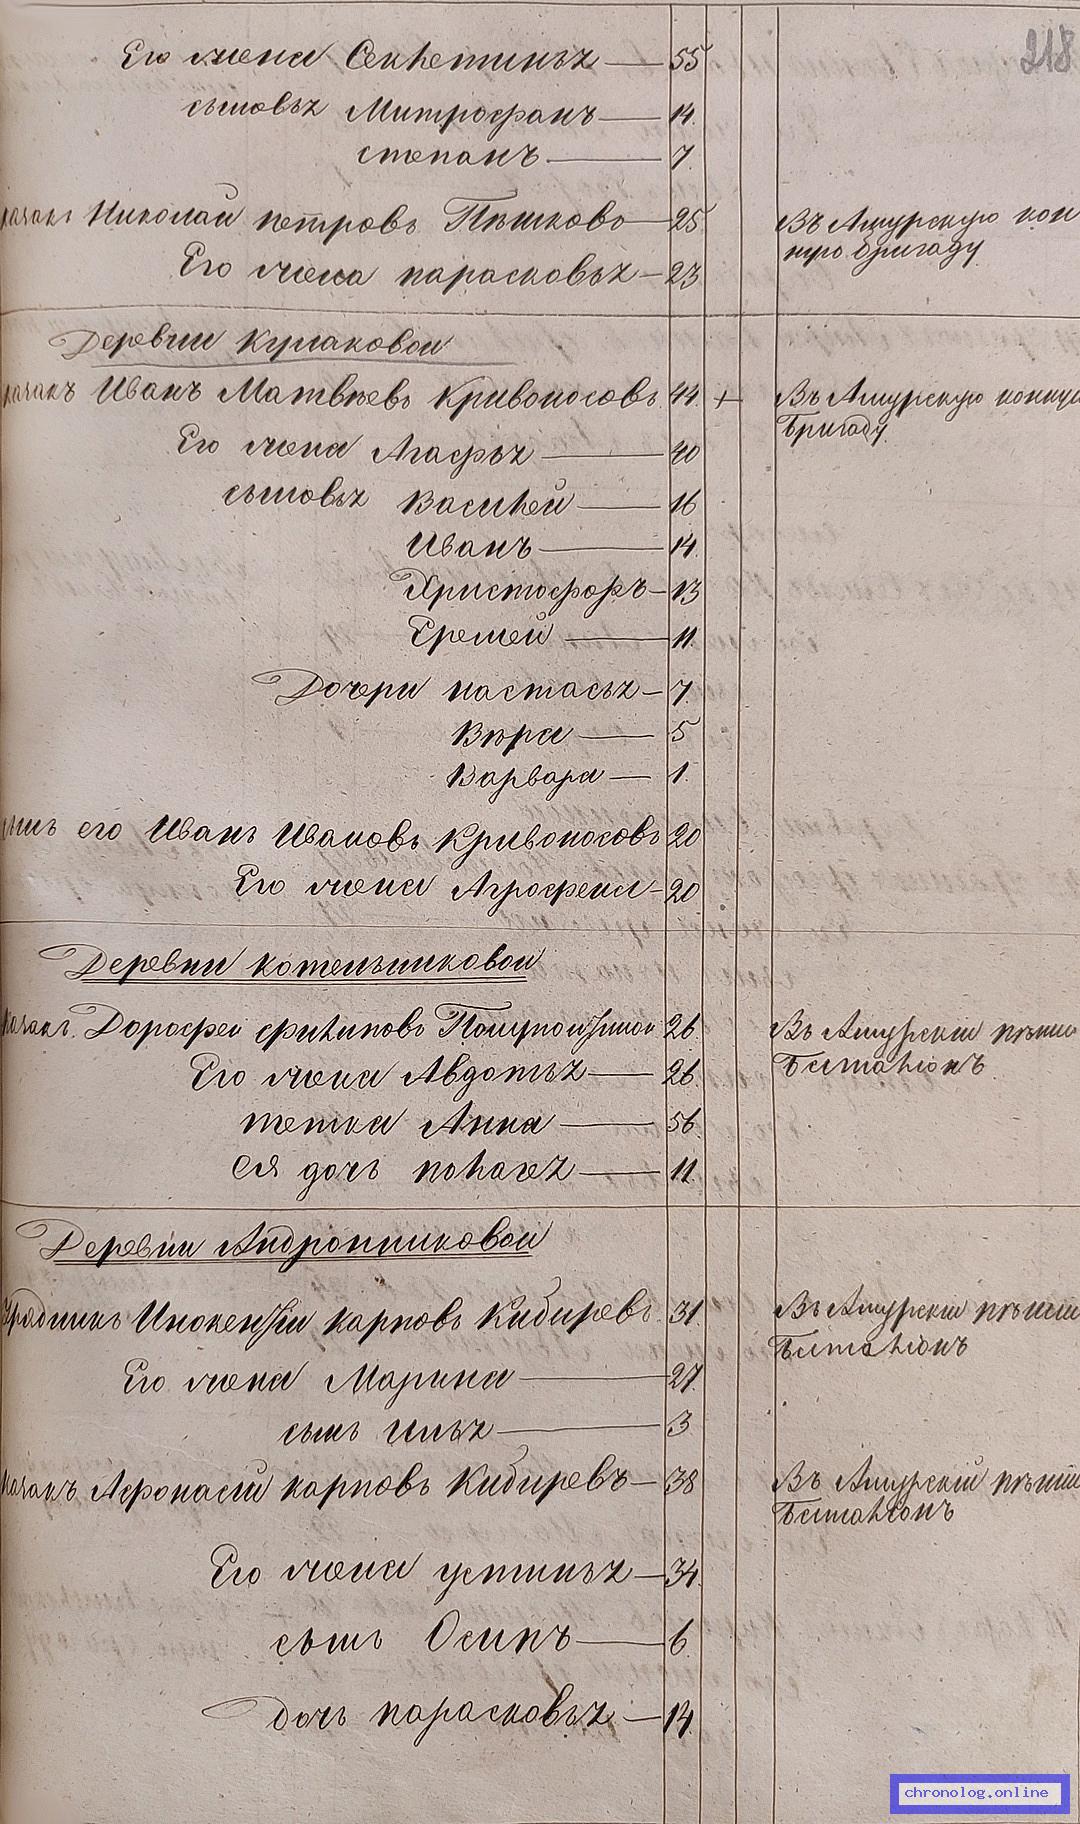 218
Его жена Секлетинья 55
сыновья Митрофанъ 14
степанъ 7
казакъ Николай петровъ Пѣшково 25 Въ Амурскую кон
Его жена парасковья 23 ную бригаду
Деревни Кулаковой
казакъ Иванъ Матвѣевъ Кривоносовъ 44 + Въ Амурскую конную
Бригаду
Его жена Агафья 40
сыновья Василей 16
Иванъ 14
Христофоръ 13
Еремей 11
Дочери настасья 7
Вѣра 5
Варвара 1
сынъ его Иванъ Ивановъ Кривоносовъ 20
Его жена Агрофена 20
Деревни котельниковой
казакъ Дорофей филиповъ 26 Въ Амурскій пѣший
Его жена Авдотья 26 Баталіонъ
тетка Анна 56
Ея дочь полагея 11
Деревни Андронниковой
Урядникъ Инокентій карповъ Кибиревъ 31 Въ Амурскій пѣший
Баталіонъ
Его жена Марина 27
сынъ илья 3
казакъ Афонасій карповъ Кибиревъ 38 Въ Амурскій пѣший
Баталіонъ
Его жена устинья 34
сынъ Осипъ 6
дочь парасковья 14
chronolog.online